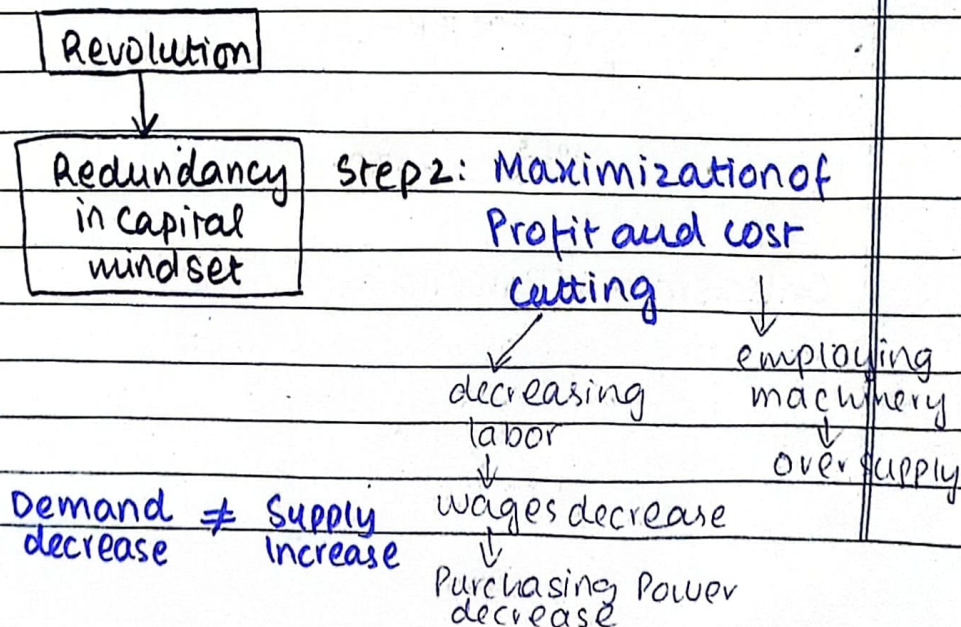 Revolution
Redundancy
in capital
mindset
Step 2: Maximization of
Profit and cost
cutting
decreasing
labor
wages decrease
Purchasing Power
decrease
employing
machinery
over supply
Demand ≠ Supply
decrease increase